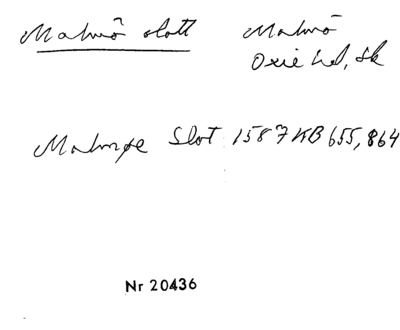 Malmö slott
Malmö
Oxie hd, Sk
Malmøe Slot 1587 KB 655, 864
Nr 20436